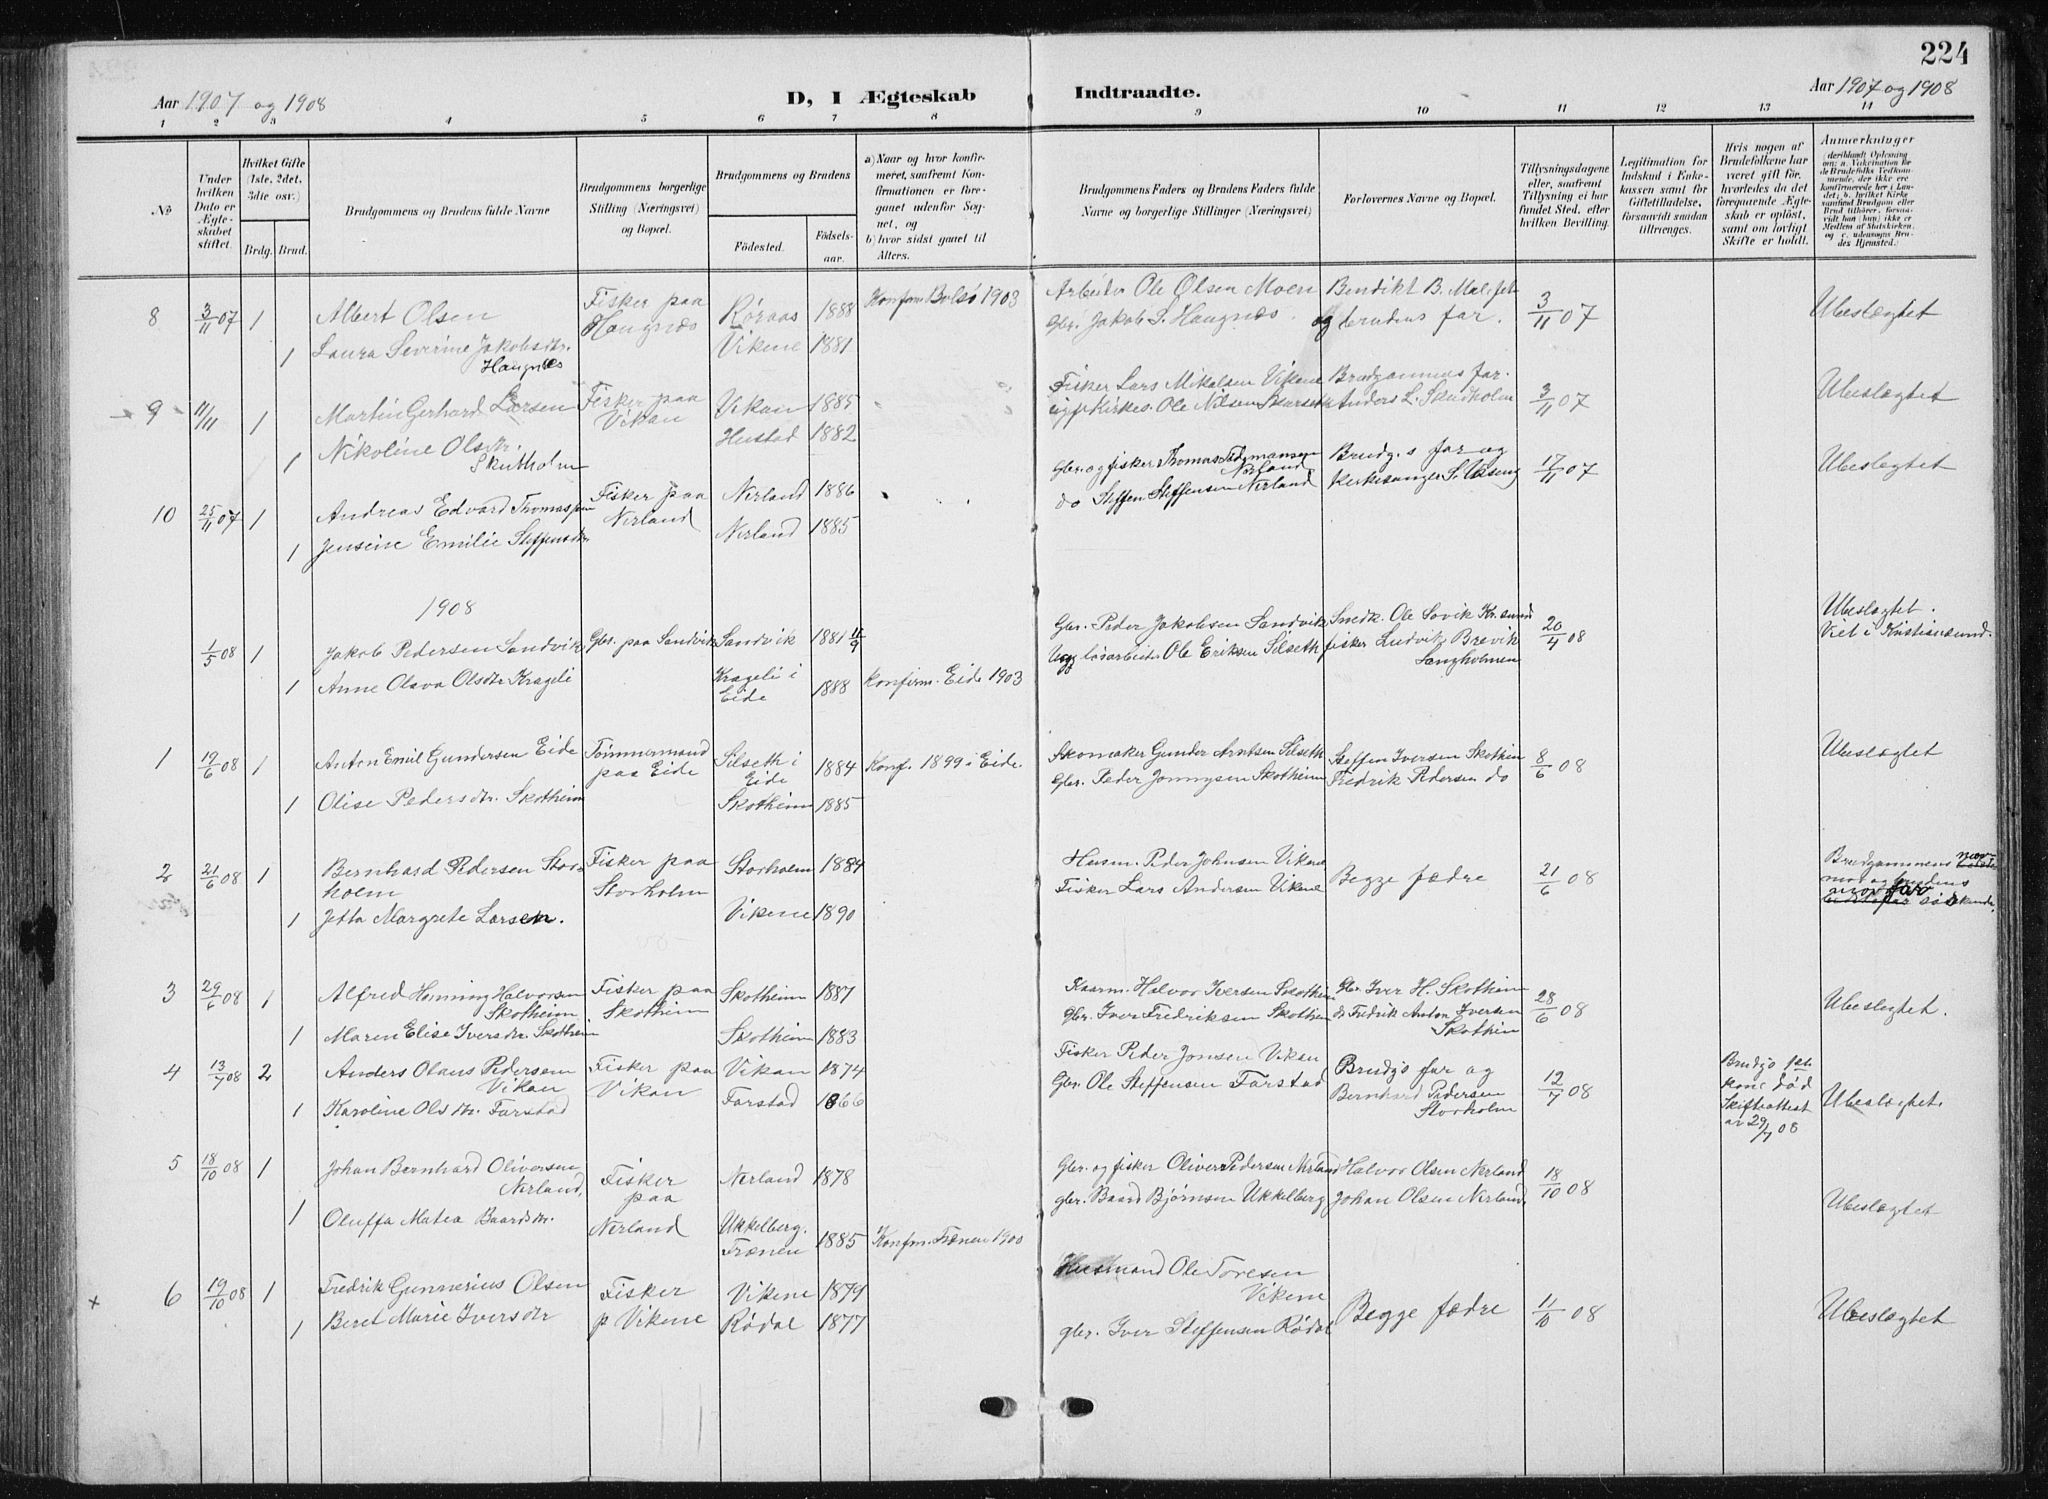 224
Aar 1907 og 1908
D, I Ægteskab Indtraadte.
Aar 1907 og 1908
1 2 3 4 5 6 7 8 9 10 11 12 13 14
№
Under hvilken Dato er Ægteskabet stiftet.
Hvilket Gifte (1ste, 2det, 3die osv.)
Brdg. Brud.
Brudgommens og Brudens fulde Navne
Brudgommens borgerlige Stilling (Næringsvei) og Bopæl.
Brudgommens og Brudens
Fødested.
Fødselsaar.
a) Naar og hvor konfirmeret, saafremt Konfirmationen er foregaaet udenfor Sognet, og
b) hvor sidst gaaet til Alters.
Brudgommens Faders og Brudens Faders fulde Navne og borgerlige Stillinger (Næringsvei)
Forlovernes Navne og Bopæl.
Tillysningsdagene eller, saafremt Tillysning ei har fundet Sted, efter hvilken Bevilling.
Legitimation for Indskud i Enkekassen samt for Giftetilladelse, forsaavidt saadan tiltrænges.
Hvis nogen af Brudefolkene har været gift før, hvorledes da det foregaaende Ægteskab er opløst, samt om lovligt Skifte er holdt.
Anmerkninger
(deriblandt Oplysning om: a. Vakcination for de Brudefolks Vedkommende, der ikke ere konfirmerede her i Landet; b. hvilket Kirkesamfund Brudgom eller Brud tilhører, forsaavidt han (hun) ikke er Medlem af Statskirken, og c. udensogns Brudes Hjemsted.)
8 3/11 07 1 Albert Olsen Fisker paa Haugnæs Røraas 1888 Konfirm. Bolsø 1903 Arbeider Ole Olsen Moen Bendikt B. Male 3/11 07 Ubeslegtet
1 Laura Severine Jakobsdtr. Haugnæs Vikene 1881 Gbr. Jakob S. Haugnæs. og brudens far.
9 11/11 1 Martin Gerhard Larsen Fisker paa Vikan Vikan 1885 Fisker Lars Mikalsen Vikene Brudgommens far. 3/11 07 Ubeslegtet
1 Nikoline Olsdtr. Skutholm Hustad 1882 Kirkes. Ole Nilsen Anders L. Skudholm
10 25/11 07 1 Andreas Edvard Thomassen Fisker paa Nerland Nerland 1886 Gbr. og fisker Thomas Nerland Brudg.s far og 17/11 07 Ubeslegtet
1 Jensine Emilie Steffensdtr. Nerland 1885 do Steffen Steffensen Nerland Kirkesanger
1908
1/5 08 1 Jakob Pedersen Sandvik Gbr. paa Sandvik Sandvik 1881 Gbr. Peder Jakobsen Sandvik Smedk. Ole Sovik Kr.sund 20/4 08 Ubeslegtet. Viet i Kristiansund.
1 Anne Olava Olsdtr Krageli Krageli i Eide 1888 Konfirm. Eide 1903 løsarbeider Ole Eriksen Silseth fisker Ludvik Brevik Langholmen
1 19/6 08 1 Anton Emil Gundersen Eide Tømmermand paa Eide Silseth i Eide 1884 Konf. 1899 i Eide. Skomaker Gunder Arntsen Silseth Steffen Iversen Skotheim 8/6 08 Ubeslegtet
1 Olise Pedersdtr. Skotheim Skotheim 1885 Gbr. Peder Skotheim Fredrik Pedersen do
2 21/6 08 1 Bernhard Pedersen Storholm Fisker paa Storholm Storholm 1884 Husm. Peder Johnsen Vikene Begge fædre 21/6 08 Brudgommens mor og brudens far søskende.
1 Jetta Margrete Larsen. Vikene 1890 Fisker Lars Andersen Vikene
3 29/6 08 1 Alfred Henning Halvorsen Skotheim Fisker paa Skotheim Skotheim 1887 Kaarm. Halvor Iversen Skotheim Gbr. Iver H. Skotheim 28/6 08 Ubeslegtet.
1 Maren Elise Iversdtr. Skotheim Skotheim 1883 gbr. Iver Fredriksen Skotheim do Fredrik Anton Iversen Skotheim
4 13/7 08 2 Anders Olaus Pedersen Vikan Fisker paa Vikan Vikan 1874 Fisker Peder Jonsen Vikan Brudgs far og 12/7 08 Brudgs 1ste kone død Skifteattest av 29/7 08 Ubeslegtet.
1 Karoline Olsdtr. Farstad Farstad 1866 Gbr. Ole Steffensen Farstad Bernhard Pedersen Storholm
5 18/10 08 1 Johan Bernhard Oliversen Nerland, Fisker paa Nerland Nerland 1878 Gbr. og fisker Oliver Pedersen Nerland Halvor Olsen Nerland 18/10 08 Ubeslegtet
1 Oluffa Matea Baardsdtr. Ukkelberg. Frænen 1885 Konfirm. Frænen 1900 gbr. Baard Bjørnsen Ukkelberg Johan Olsen Nerland
+ 6 19/10 08 1 Fredrik Gunnerius Olsen Fisker p Vikene Vikene 1879 Husmand Ole Toresen Vikene Begge fædre 11/10 08 Ubeslegtet
1 Beret Marie Iversdtr Rødal 1877 gbr. Iver Steffensen Rødal